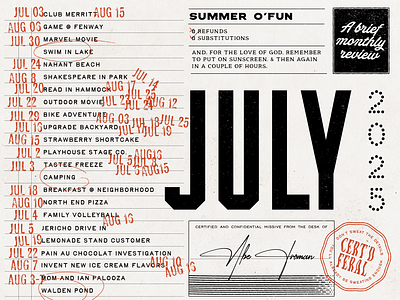 JUL 03 CLUB MERRITT AUG 15
AUG 06 GAME @ FENWAY
JUL 30 MARVEL MOVIE
SWIM IN LAKE
JUL 24 NAHANT BEACH
AUG 8 SHAKESPEARE IN PARK JUL 14
JUL 20 READ IN HAMMOCK AUG 17 JUL 25
JUL 22 OUTDOOR MOVIE JUL 24 AUG 12
JUL 29 BIKE ADVENTURE AUG 03 JUL 18 JUL 25
JUL 16 UPGRADE BACKYARD JUL 19
AUG 15 STRAWBERRY SHORTCAKE
JUL 2 PLAYHOUSE STAGE CO. AUG 16
JUL 3 TASTEE FREEZE
CAMPING
JUL 18 BREAKFAST @ NEIGHBORHOOD
AUG 10 NORTH END PIZZA
JUL 4 FAMILY VOLLEYBALL
JUL 5 JERICHO DRIVE IN AUG 16
JUL 19 LEMONADE STAND CUSTOMER
JUL 22 PAIN AU CHOCOLAT INVESTIGATION
AUG 7 INVENT NEW ICE CREAM FLAVORS AUG 16
AUG 3-7 MOM AND IAN PALOOZA AUG 16
WALDEN POND
SUMMER O'FUN
0 REFUNDS
0 SUBSTITUTIONS
AND, FOR THE LOVE OF GOD, REMEMBER
TO PUT ON SUNSCREEN. & THEN AGAIN
IN A COUPLE OF HOURS.
A brief
monthly
review
JULY
2025
CERTIFIED AND CONFIDENTIAL MISSIVE FROM THE DESK OF
DON'T SWEAT THE DETAILS
CERT'D
FERAL